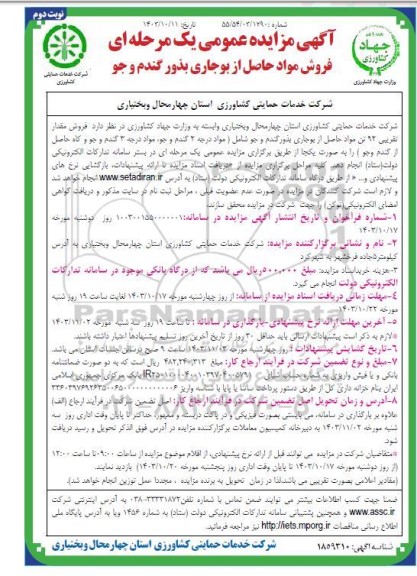 نوبت دوم
شماره : ۵۵/۵۴/۰۳/۱۲۹۰
تاریخ: ۱۴۰۳/۱۰/۱۱
آگهی مزایده عمومی یک مرحله ای
فروش مواد حاصل از بوجاری بذور گندم و جو
جهاد
کشاورزی
وزارت جهاد کشاورزی
شرکت خدمات حمایتی کشاورزی
شرکت خدمات حمایتی کشاورزی استان چهارمحال وبختیاری
شرکت خدمات حمایتی کشاورزی استان چهارمحال وبختیاری وابسته به وزارت جهاد کشاورزی در نظر دارد فروش مقدار
تقریبی ۹۲ تن مواد حاصل از بوجاری بذورگندم و جو شامل ( مواد درجه ۲ گندم و جو، مواد درجه ۳ گندم و جو و کاه حاصل
از گندم و جو ) را به صورت یکجا از طریق برگزاری مزایده عمومی یک مرحله ای در بستر سامانه تدارکات الکترونیکی
دولت(ستاد) انجام دهد. کلیه مراحل برگزاری مزایده از دریافت اسناد مزایده تا ارائه پیشنهادات، بازگشایی نرخ های
پیشنهادی و... از طریق درگاه سامانه تدارکات الکترونیکی دولت (ستاد) به آدرس www.setadiran.ir انجام خواهد شد
و لازم است شرکت کنندگان در مزایده در صورت عدم عضویت قبلی ، مراحل ثبت نام در سایت مذکور و دریافت گواهی
امضای الکترونیکی(توکن) را جهت شرکت در مزایده محقق سازند.
۱-شماره فراخوان و تاریخ انتشار آگهی مزایده در سامانه: روز دوشنبه مورخه
۱۴۰۳/۱۰/۱۷
۲- نام و نشانی برگزارکننده مزایده: شرکت خدمات حمایتی کشاورزی استان چهارمحال وبختیاری به آدرس
کیلومتر جاده فرخشهر به شهرکرد
۳-هزینه خریداسناد مزایده: ریال می باشد که از درگاه بانکی موجود در سامانه تدارکات
الکترونیکی دولت انجام می گیرد.
۴-مهلت زمانی دریافت اسناد مزایده از سامانه: از روز چهارشنبه مورخه لغایت ساعت ۱۹ روز شنبه
مورخه ۱۴۰۳/۱۰/۲۲
۵- آخرین مهلت ارائه نرخ پیشنهادی-بارگذاری در سامانه : تا ساعت ۱۹ روز سه شنبه مورخه ۱۴۰۳/۱۱/۰۲
*لازم به ذکر است پیشنهادات ارسالی باید حداقل ۳۰ روز از تاریخ آخرین روز تسلیم پیشنهادها اعتبار داشته باشند.
۶-تاریخ گشایش پیشنهادات : روز چهارشنبه مورخه ۱۴۰۳/۱۱/۰۳ ساعت ۹ صبح در سالن جلسات استان می باشد.
۷-مبلغ و نوع تضمین شرکت در فرآیند ارجاع کار: مبلغ ریال است که به دو صورت ضمانتنامه
بانکی و یا فیش واریزی به حساب بانک مرکزی جمهوری اسلامی
ایران بنام خزانه داری کل از طریق دستور پرداخت ساتنا یا پایا با شناسه واریز
۸-آدرس و زمان تحویل اصل تضمین شرکت در فرآیند ارجاع کار: اصل تضمین شرکت در فرآیند ارجاع (الف)
علاوه بر بارگذاری در سامانه، می بایستی بصورت فیزیکی و در پاکت دربسته و ممهور، حداکثر تا پایان وقت اداری روز سه
شنبه مورخه ۱۴۰۳/۱۱/۰۲ به دبیرخانه کمیسیون معاملات برگزارکننده مزایده در آدرس فوق الذکر تحویل و رسید دریافت
شود.
*متقاضیان شرکت در مزایده می توانند قبل از ارائه نرخ پیشنهادی، از اقلام موضوع مزایده از ساعات ۰۹:۰۰ تا ساعت ۱۲:۰۰
(از روز دوشنبه مورخه ۱۴۰۳/۱۰/۱۷ تا پایان وقت اداری روز پنجشنبه مورخه ۱۴۰۳/۱۰/۲۰) بازدید نمایند.
(مقادیر اعلامی بصورت تقریبی می باشد،لذا در زمان تحویل به برنده مزایده ، مجددا عمل توزین انجام خواهد شد).
ضمنا جهت کسب اطلاعات بیشتر می توانید ضمن تماس با شماره تلفن ۰۳۸-۳۳۳۳۱۸۷۲ به آدرس اینترنتی شرکت
www.assc.ir و همچنین پشتیبانی سامانه تدارکات الکترونیکی دولت (ستاد) به شماره ۱۴۵۶ ویا به آدرس پایگاه ملی
اطلاع رسانی مناقصات http://iets.mporg.ir نیز مراجعه فرمائید.
شناسه آگهی: ۱۸۵۹۳۱۰
شرکت خدمات حمایتی کشاورزی استان چهارمحال وبختیاری